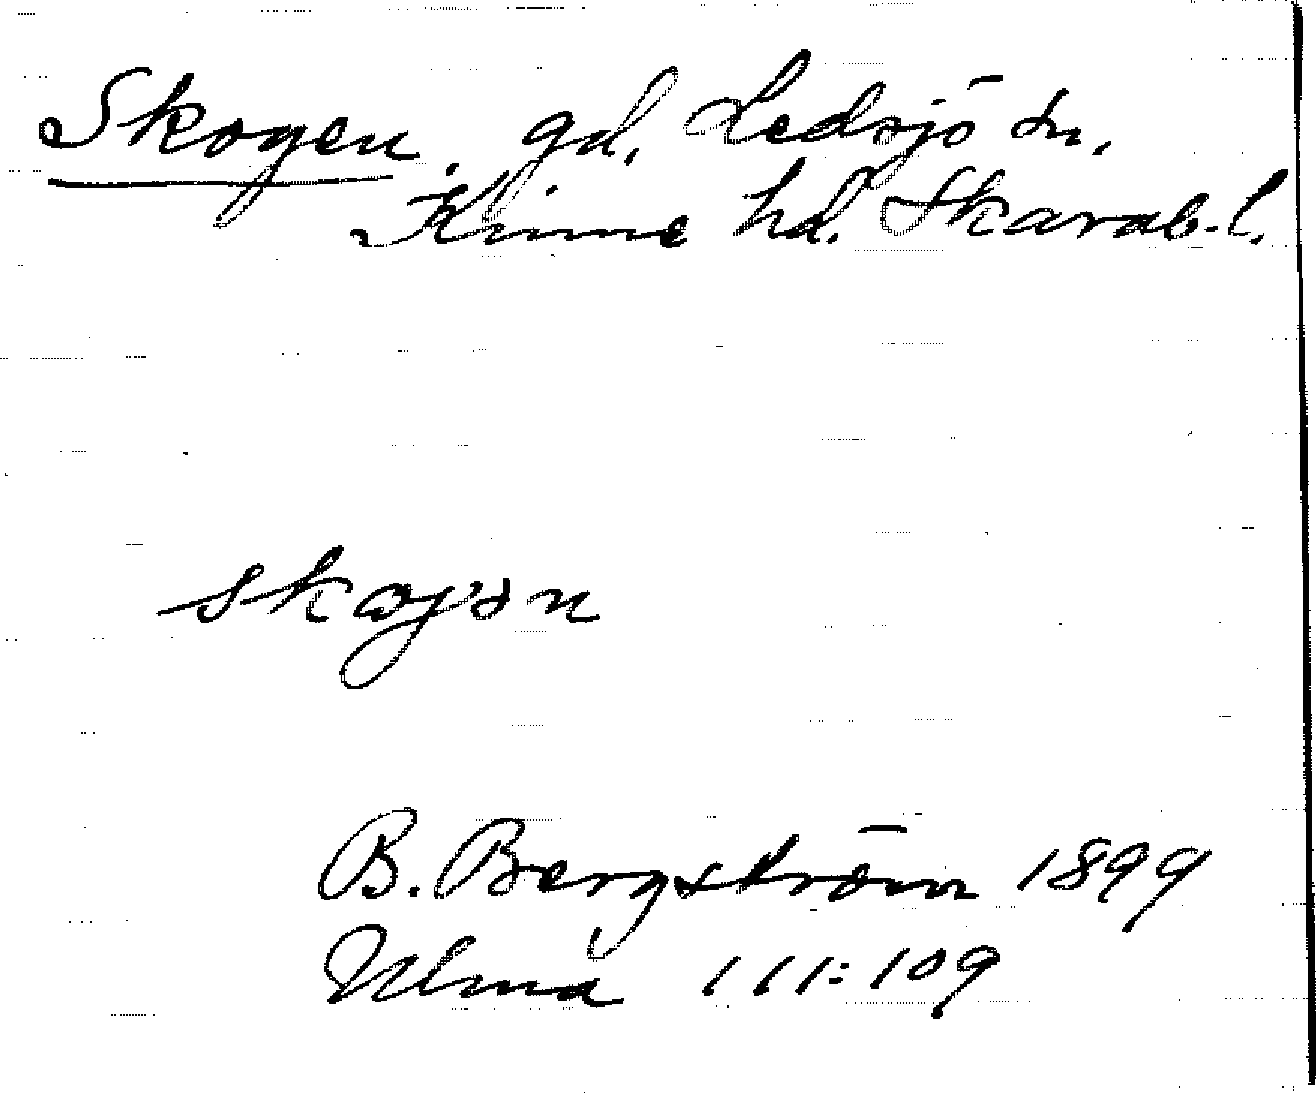 Skogen, gd, Ledsjö sn,
Kinne hd. Skarab. l.
skogən
B. Bergström 1899
Ulma 111:109